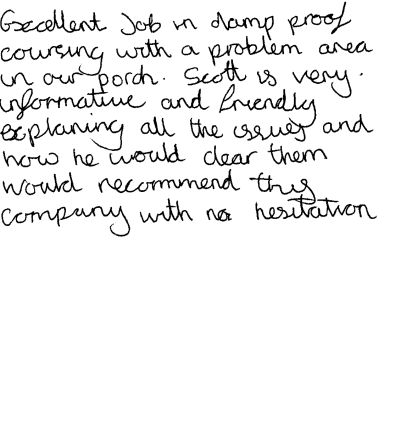 Excellent Job in damp proof
coursing with a problem area
in our porch. Scott is very.
informative and friendly
explaning all the issues and
how he would clear them
would recommend this
company with no hesitation